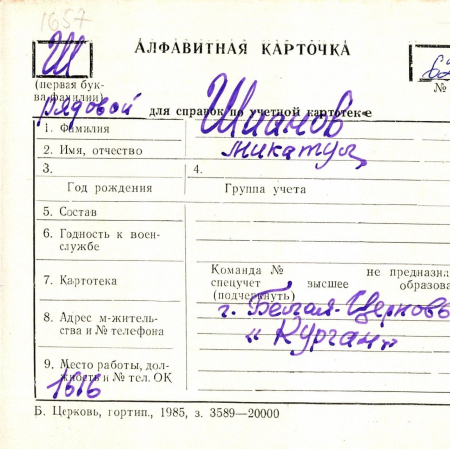 1657
Ш
АЛФАВИТНАЯ КАРТОЧКА
(первая бук-
ва фамилии)
№
рядовой
для справок по учетной картотеке
1. Фамилия
Шианов
2. Имя, отчество
3.
Год рождения
4.
Группа учета
5. Состав
6. Годность к воен-
службе
7. Картотека
Команда № не предназна
спецучет, высшее образова
(подчеркнуть)
8. Адрес м-житель-
ства и № телефона
г. Белая-Церковь
„Курган"
9. Место работы, дол-
жность и № тел. ОК
1616
Б. Церковь, гортип., 1985, з. 3589—20000